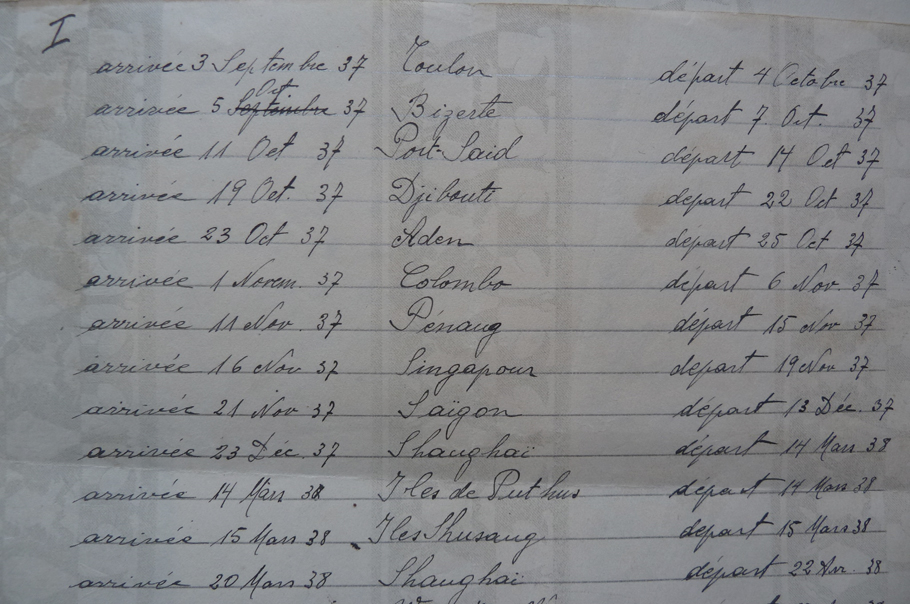 I
arrivée 3 Septembre 37 Toulon départ 4 Octobre 37
arrivée 5 Septembre Oct 37 Bizerte départ 7 Oct. 37
arrivée 11 Oct 37 Port-Said départ 14 Oct 37
arrivée 19 Oct. 37 Djibouti départ 22 Oct 37
arrivée 23 Oct 37 Aden départ 25 Oct 37
arrivée 1 Novem. 37 Colombo départ 6 Nov. 37
arrivée 11 Nov. 37 Pénang départ 15 Nov 37
arrivée 16 Nov 37 Singapour départ 19 Nov 37
arrivée 21 Nov 37 Saïgon départ 13 Déc. 37
arrivée 23 Déc. 37 Shanghaï départ 14 Mars 38
arrivée 14 Mars 38 Iles de Put hus départ 14 Mars 38
arrivée 15 Mars 38 Iles Shusang départ 15 Mars 38
arrivée 20 Mars 38 Shanghaï départ 22 Avr. 38